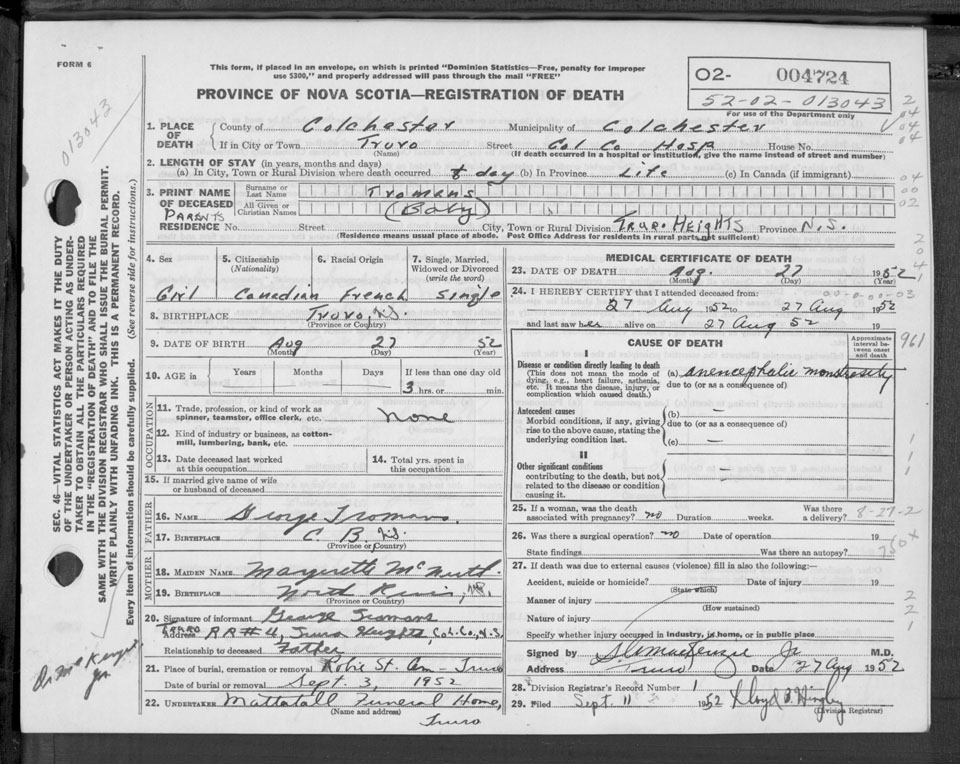 FORM 6
This form, if placed in an envelope, on which is printed "Dominion Statistics—Free, penalty for improper
use $300," and properly addressed will pass through the mail "FREE"
PROVINCE OF NOVA SCOTIA—REGISTRATION OF DEATH
02- 004724
52-02-013043
For use of the Department only
013043
SEC. 46—VITAL STATISTICS ACT MAKES IT THE DUTY
OF THE UNDERTAKER OR PERSON ACTING AS UNDER-
TAKER TO OBTAIN ALL THE PARTICULARS REQUIRED
IN THE "REGISTRATION OF DEATH" AND TO FILE THE
SAME WITH THE DIVISION REGISTRAR WHO SHALL ISSUE THE BURIAL PERMIT.
WRITE PLAINLY WITH UNFADING INK. THIS IS A PERMANENT RECORD.
Every item of information should be carefully supplied. (See reverse side for instructions.)
1. PLACE OF DEATH County of Colchester Municipality of Colchester
If in City or Town Truro Street Col Co Hosp House No.
(Name) (If death occurred in a hospital or institution, give the name instead of street and number)
2. LENGTH OF STAY (in years, months and days)
(a) In City, Town or Rural Division where death occurred day (b) In Province Life (c) In Canada (if immigrant)
3. PRINT NAME OF DECEASED Surname or Last Name Tromans
All Given or Christian Names (Baby)
PARENTS
RESIDENCE No. Street City, Town or Rural Division TRURO HEIGHTS Province N.S.
(Residence means usual place of abode. Post Office Address for residents in rural parts not sufficient)
4. Sex 5. Citizenship (Nationality) 6. Racial Origin 7. Single, Married, Widowed or Divorced (write the word)
Girl Canadian French Single
8. BIRTHPLACE Truro, N.S.
(Province or Country)
9. DATE OF BIRTH Aug 27 52
(Month) (Day) (Year)
10. AGE in Years Months Days If less than one day old
3 hrs. or min.
OCCUPATION
11. Trade, profession, or kind of work as
spinner, teamster, office clerk, etc. None
12. Kind of industry or business, as cotton-
mill, lumbering, bank, etc.
13. Date deceased last worked at this occupation 14. Total yrs. spent in this occupation
15. If married give name of wife
or husband of deceased
FATHER
16. NAME George Tromans.
17. BIRTHPLACE C. B. N.S.
(Province or Country)
MOTHER
18. MAIDEN NAME
19. BIRTHPLACE North River, N.S.
(Province or Country)
20. Signature of informant George Tromans
TRURO
Address RR#4, Truro Heights, Col. Co., N.S.
Relationship to deceased Father
21. Place of burial, cremation or removal Robie St. Cem - Truro
Date of burial or removal Sept. 3, 1952
22. UNDERTAKER Mattatall Funeral Home,
(Name and address)
Truro
MEDICAL CERTIFICATE OF DEATH
23. DATE OF DEATH Aug. 27 1952
(Month) (Day) (Year)
24. I HEREBY CERTIFY that I attended deceased from:
27 Aug 1952 to 27 Aug 1952
and last saw her alive on 27 Aug 52 19
CAUSE OF DEATH
Approximate interval between onset and death
I
Disease or condition directly leading to death (a) anencephalic monstrosity
(This does not mean the mode of
dying, e.g., heart failure, asthenia,
etc. It means the disease, injury, or
complication which caused death.)
due to (or as a consequence of)
Antecedent causes (b) —
Morbid conditions, if any, giving
rise to the above cause, stating the
underlying condition last.
due to (or as a consequence of)
(c) —
II
Other significant conditions —
contributing to the death, but not
related to the disease or condition
causing it.
25. If a woman, was the death
associated with pregnancy? no Duration weeks. Was there a delivery? 8-27-2
26. Was there a surgical operation? no Date of operation 19
State findings Was there an autopsy?
27. If death was due to external causes (violence) fill in also the following:—
Accident, suicide or homicide? Date of injury 19
(State which)
Manner of injury
(How sustained)
Nature of injury
Specify whether injury occurred in industry, in home, or in public place
Signed by S.G. MacKenzie Jr M.D.
Address Truro Date 27 Aug 1952
28. Division Registrar's Record Number 1
29. Filed Sept 11 1952
(Division Registrar)
961